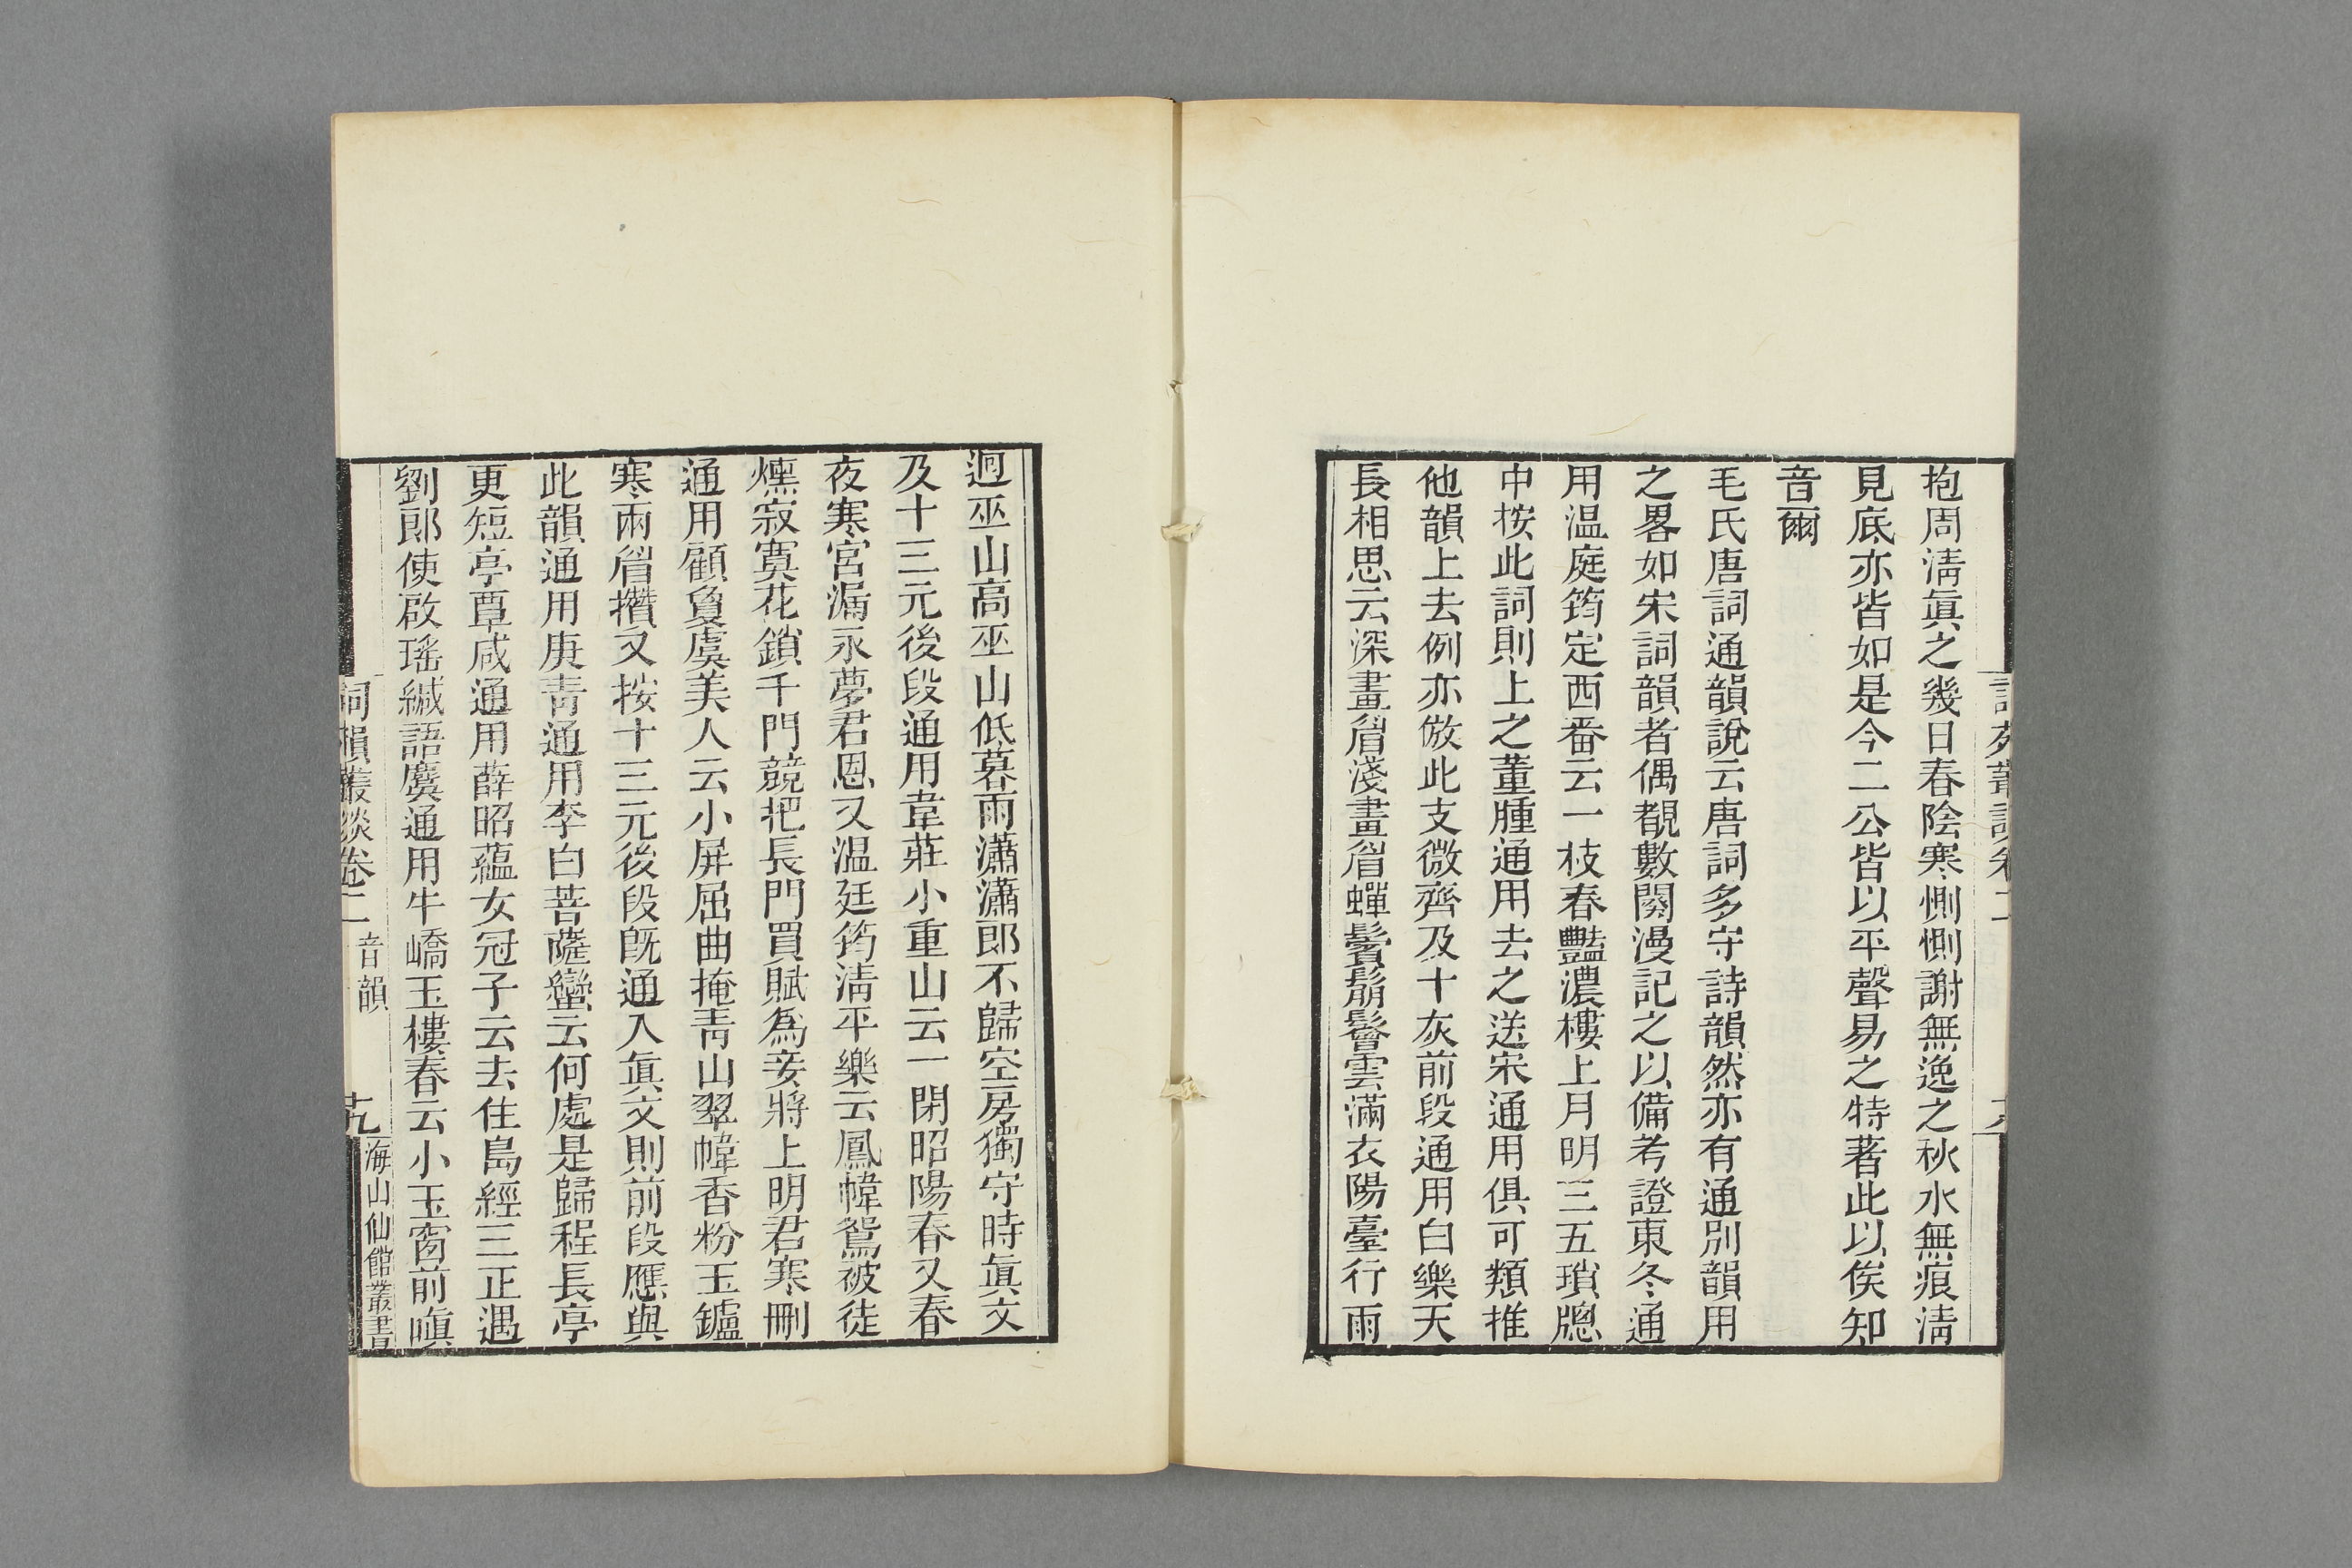 抱周淸眞之幾日春陰寒惻惻謝無逸之秋水無痕淸
見底亦皆如是今二公皆以平聲易之特著此以俟知
音爾
毛氏唐詞通韻說云唐詞多守詩韻然亦有通別韻用
之畧如宋詞韻者偶覩數闋漫記之以備考證東冬通
用温庭筠定西番云一枝春豔濃樓上月明三五瑣牕
中按此詞則上之董腫通用去之送宋通用俱可類推
他韻上去例亦倣此支微齊及十灰前段通用白樂天
長相思云深畫眉淺畫眉蟬鬢鬅鬙雲滿衣陽臺行雨
迴巫山高巫山低暮雨瀟瀟郎不歸空房獨守時眞文
及十三元後段通用韋莊小重山云一閉昭陽春又春
夜寒宮漏永夢君恩又温廷筠淸平樂云鳳幃鴛被徒
燻寂寞花鎖千門競把長門買賦爲妾將上明君寒刪
通用顧敻虞美人云小屏屈曲掩靑山翠幃香粉玉鑪
寒兩眉攢又按十三元後段旣通入眞文則前段應與
此韻通用庚靑通用李白菩薩蠻云何處是歸程長亭
更短亭覃咸通用薛昭蘊女冠子云去住島經三正遇
劉郎使啟瑤緘語麌通用牛嶠玉樓春云小玉窗前嗔
詞韻叢談卷二 音韻 十九 海山仙館叢書